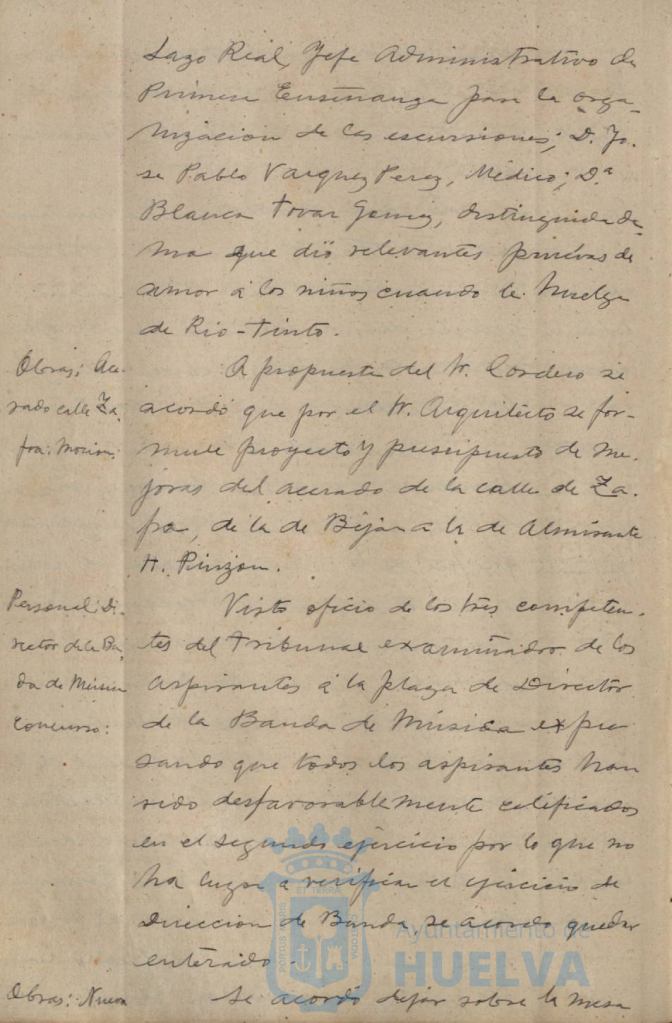 Lazo Real, Jefe Administrativo de
Primera Enseñanza para la orga-
nización de las escursiones; D. Jo-
se Pablo Vazquez Perez, Médico; Dª
Blanca Tovar Gomez, distinguida da-
ma que dió relevantes pruebas de
amor á los niños cuando la huelga
de Rio-Tinto.
Obras: Ace-
rado calle Za-
fra: Mocion:
A propuesta del Sr. Cordero se
acordó que por el Sr. Arquitecto se for-
mule proyecto y presupuesto de me-
joras del acerado de la calle de Za-
fra, de la de Béjar a la de Almirante
H. Pinzon.
Personal: Di-
rector de la Ban-
da de Música
Concurso:
Visto oficio de los tres competen-
tes del Tribunal examinador de los
aspirantes á la plaza de Director
de la Banda de Música expre
sando que todos los aspirantes han
sido desfavorablemente calificados
en el segundo ejercicio por lo que no
ha lugar a verificar el ejercicio de
Direccion de Banda, se acordó quedar
enterado.
Obras: Nueva
Se acordó dejar sobre la mesa
Ayuntamiento de
HUELVA